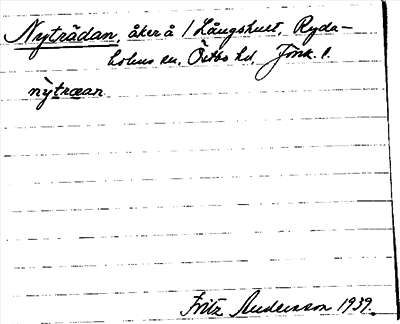 Nyträdan, åker å 1 Långshult, Ryda-
holms sn, Östbo hd, Jönk. l.
nỳtræan.
Fritz Andersson 1939.